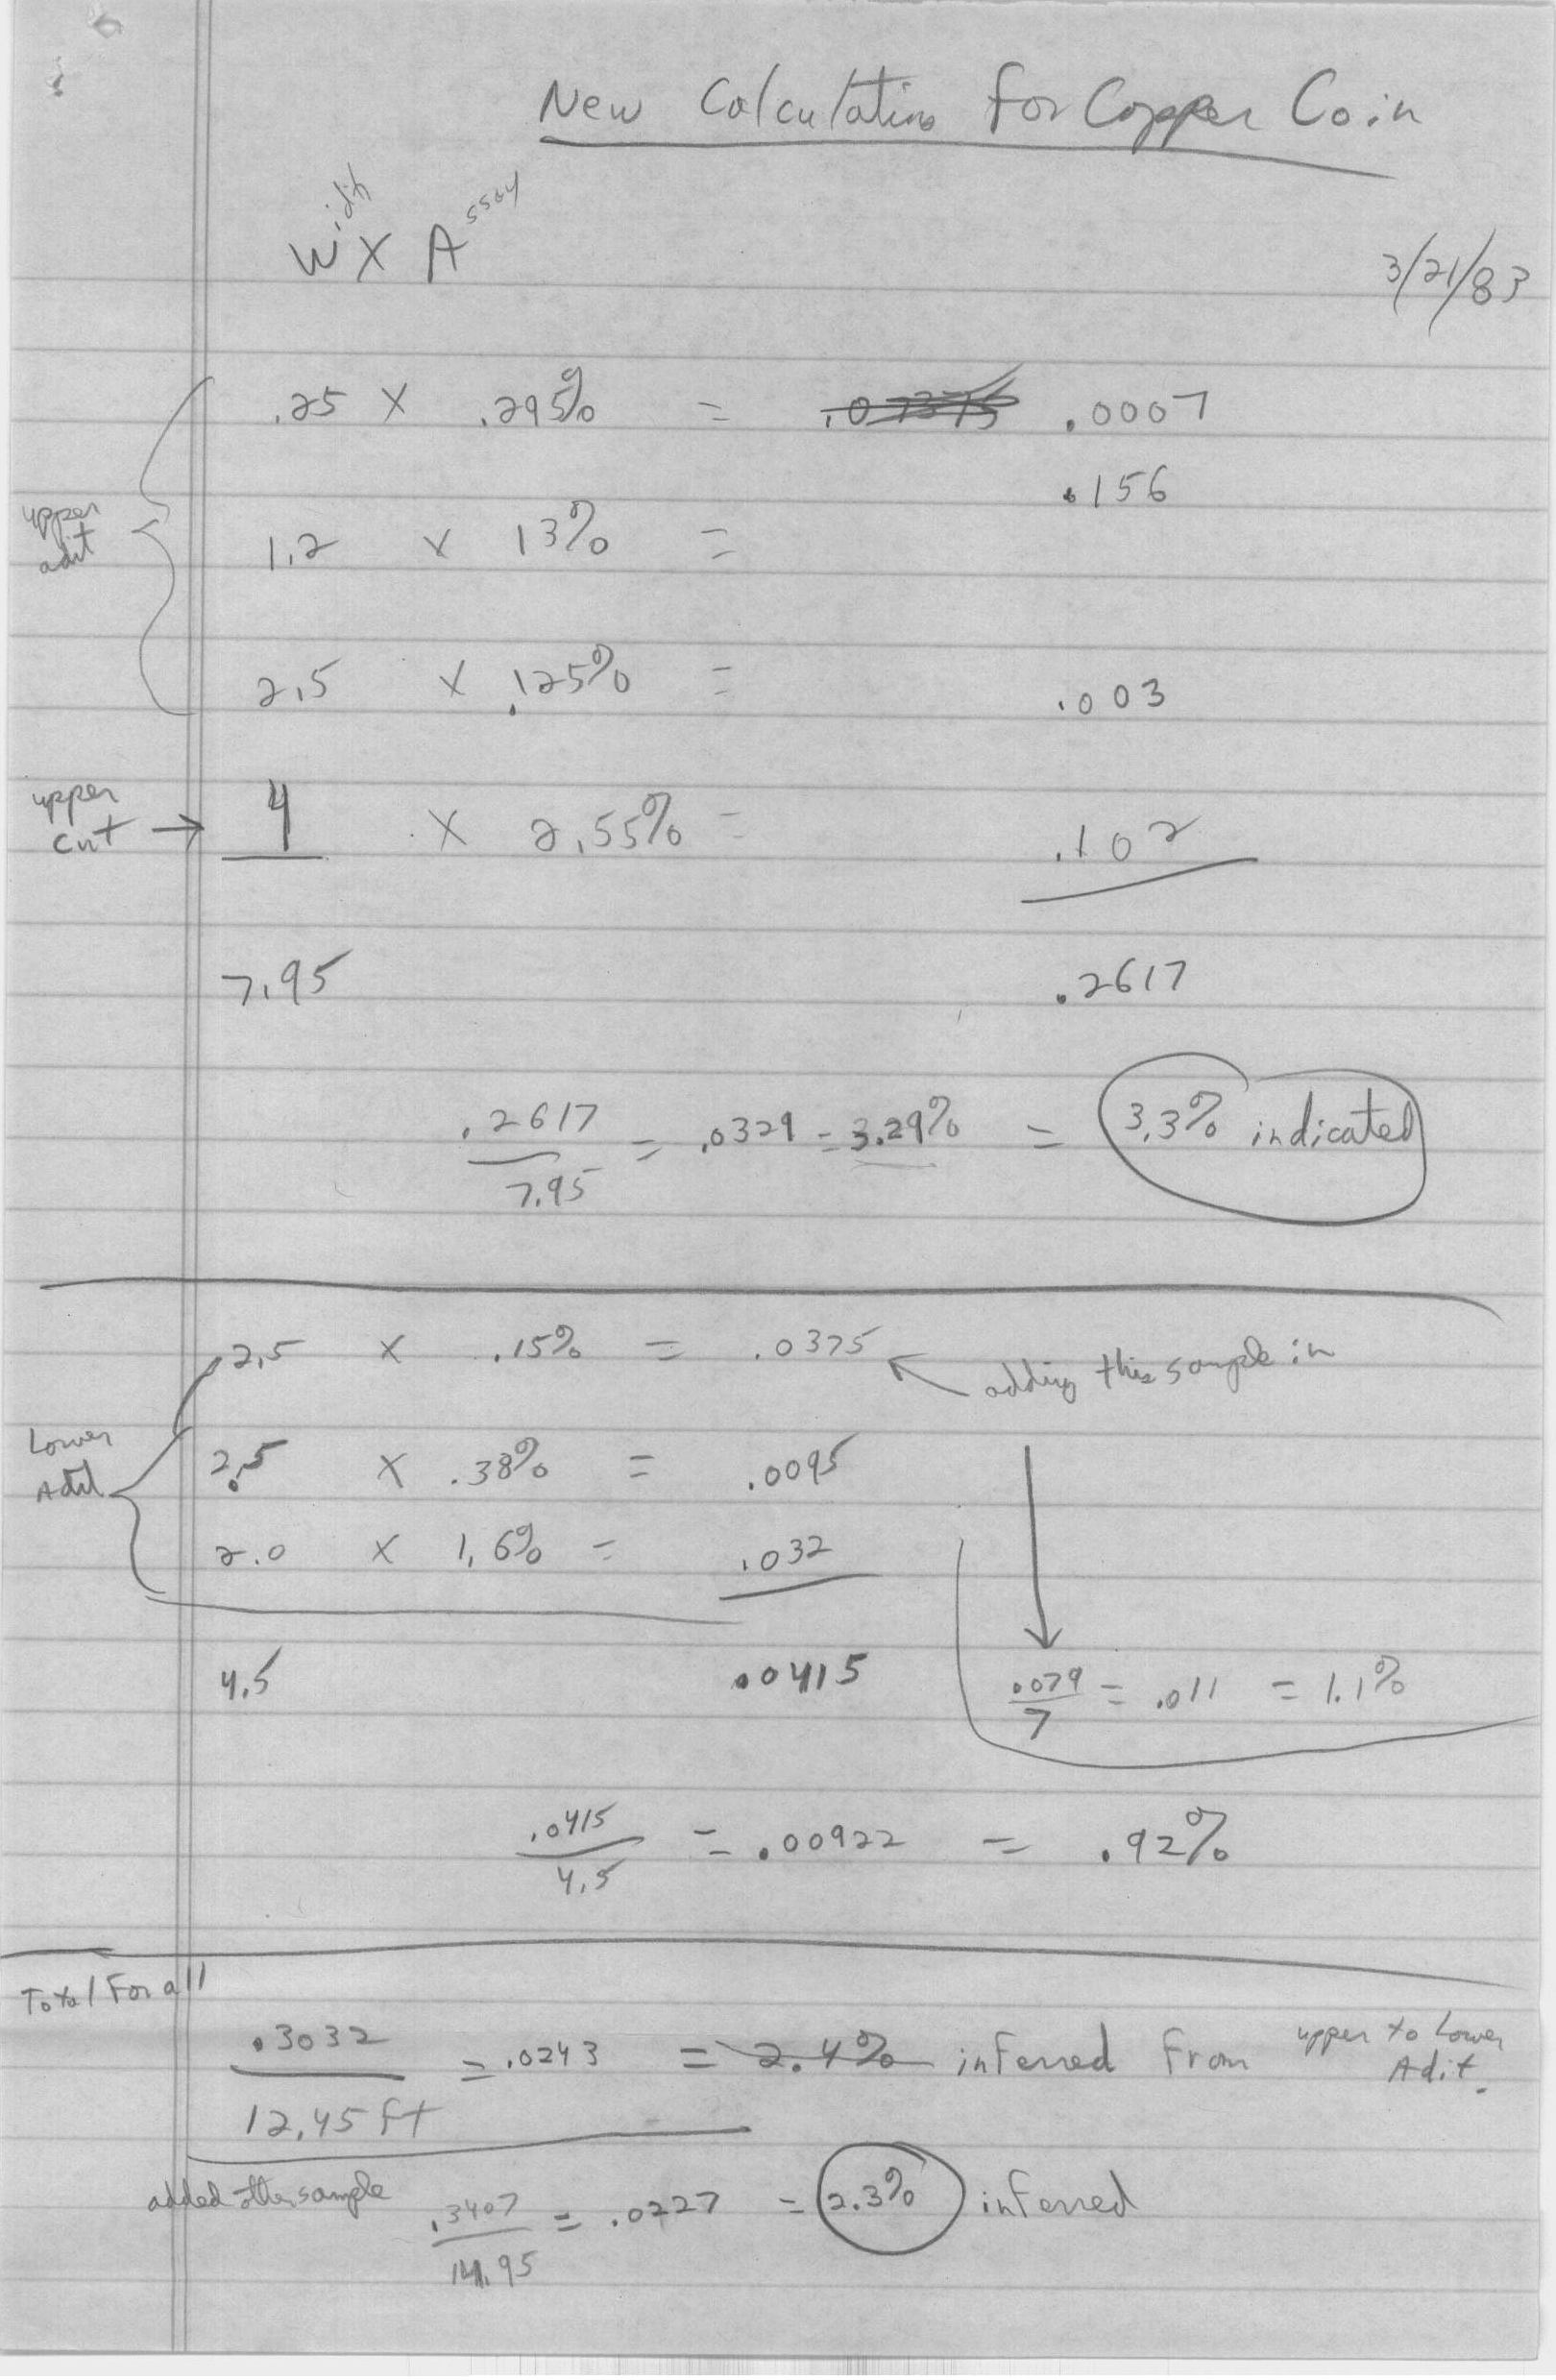 New Calculations for Copper Coin
Width X Assay
3/21/83
.25 X .295% = .07375 .0007
.156
upper
adit
1.2 x 13% =
2.5 x .125% = .003
upper
cut → 4 x 2.55% = .102
7.95 .2617
.2617
7.95
= .0329 = 3.29% = 3.3% indicated
2.5 x .15% = .0375 ← adding this sample in
Lower
Adit
2.5 x .38% = .0095
2.0 x 1.6% = .032
4.5 .0415
.079
7
= .011 = 1.1%
.0415
4.5
= .00922 = .92%
Total For all
.3032
12.45 ft
= .0243 = 2.4% inferred from upper to Lower
Adit.
added other sample
.3407
14.95
= .0227 = 2.3% inferred